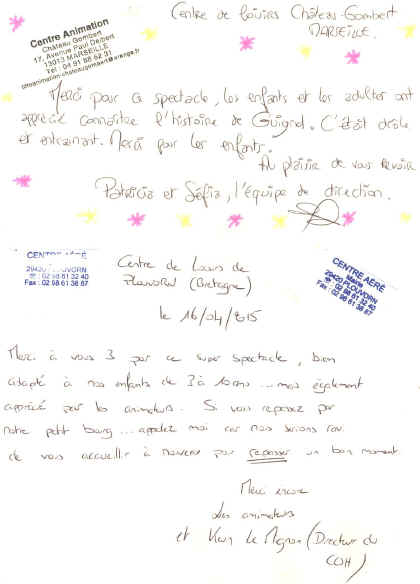 Centre de Loisirs Château-Gombert
MARSEILLE.
Centre Animation
Château Gombert
17, Avenue Paul Dalbert
13013 MARSEILLE
Tél : 04 91 68 62 31
Merci pour ce spectacle, les enfants et les adultes ont
apprécié connaître l'histoire de Guignol. C'était drôle
et entrainant. Merci pour les enfants.
Au plaisir de vous revoir
Patricia et Séfia, l'équipe de direction.
CENTRE AÉRÉ
29420 PLOUVORN
☎ : 02 98 61 32 40
Fax : 02 98 61 38 87
Centre de Loisirs de
PLOUVORN (Bretagne)
CENTRE AÉRÉ
Mairie
29420 PLOUVORN
☎ : 02 98 61 32 40
Fax : 02 98 61 38 87
le 16/04/2015
Merci à vous 3 par ce super spectacle, bien
adapté à nos enfants de 3 à 10 ans ... mais également
apprécié par les animateurs. Si vous repassez par
notre petit bourg ... appelez moi car nous serions ravi
de vous accueillir à nouveau pour repasser un bon moment
Merci encore
Les animateurs
et (Directeur du